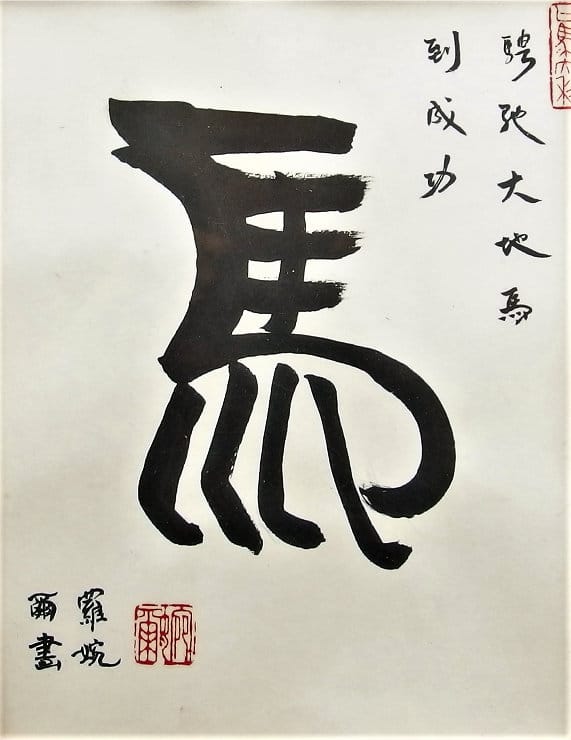 騁馳大地馬
到成功
馬
羅婉
爾畫